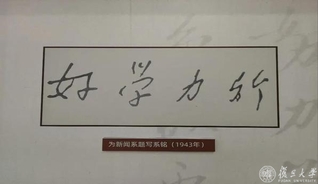 好学力行
为新闻系题写系铭（1943年）
復旦大學
FUDAN UNIVERSITY